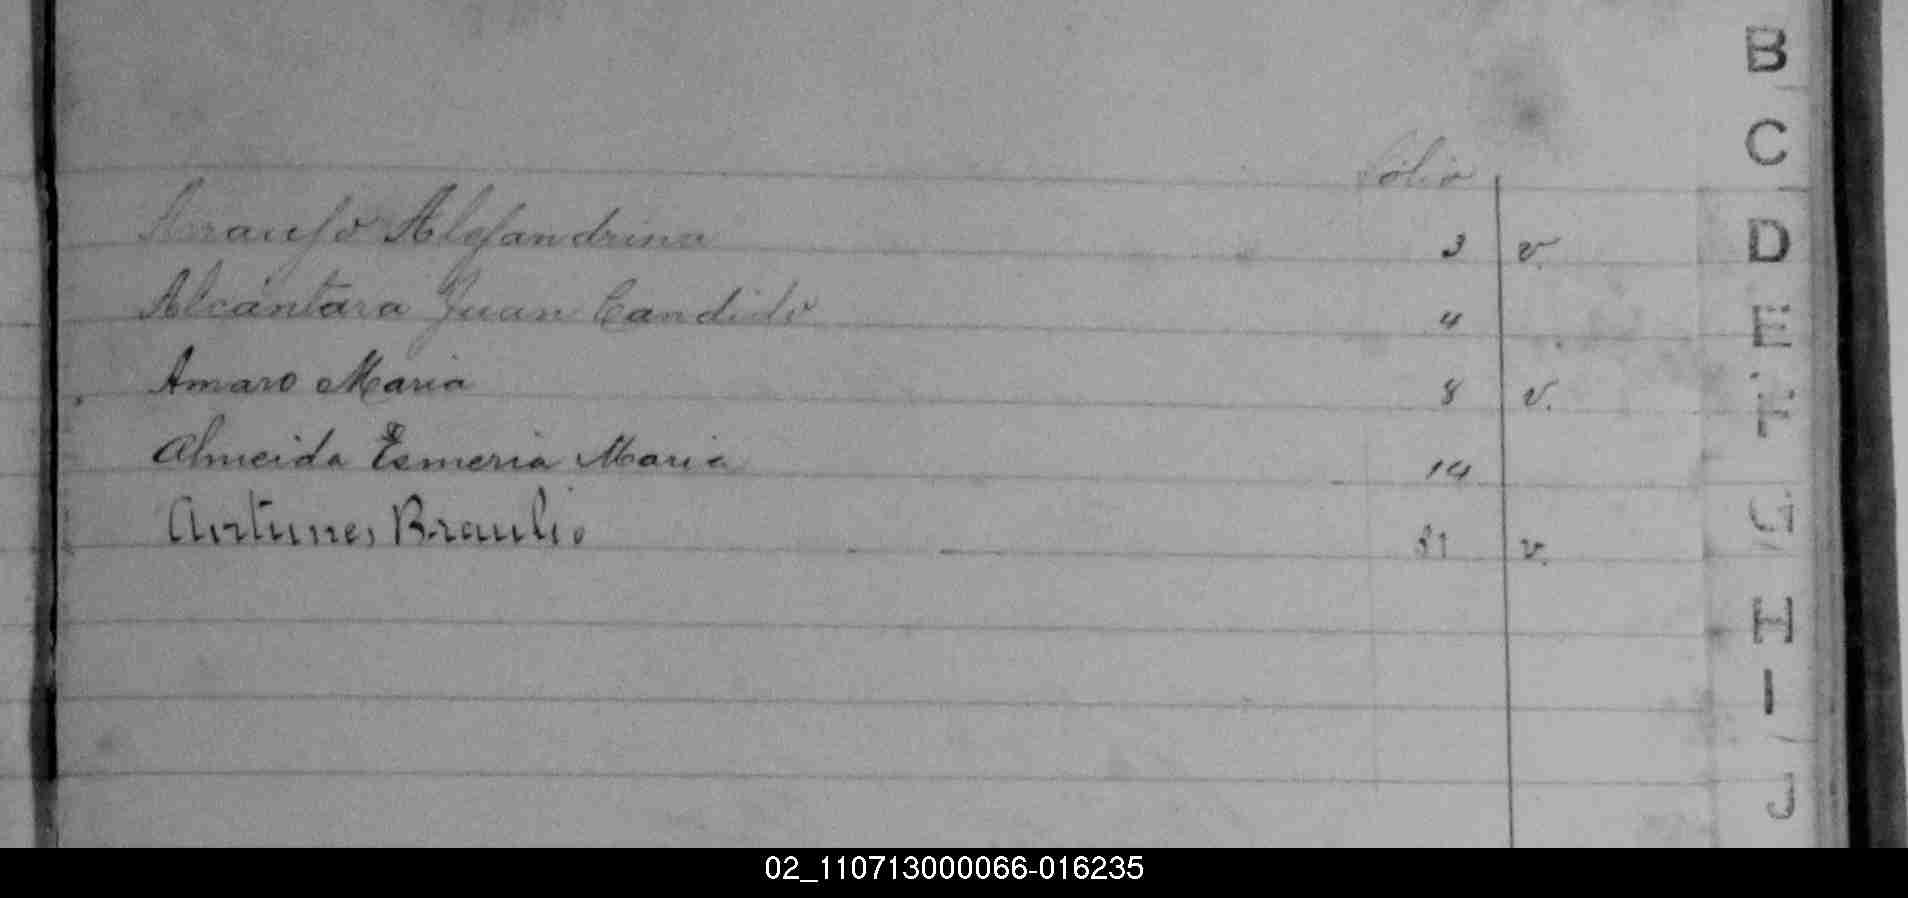 B
C
Folio
Araujo Alejandrina 3 v.
D
Alcántara Juan Candido 4
E
Amaro Maria 8 v.
F
Almeida Esmeria Maria 14
G
Antunes Braulio 31 v.
H
I
J
02_110713000066-016235